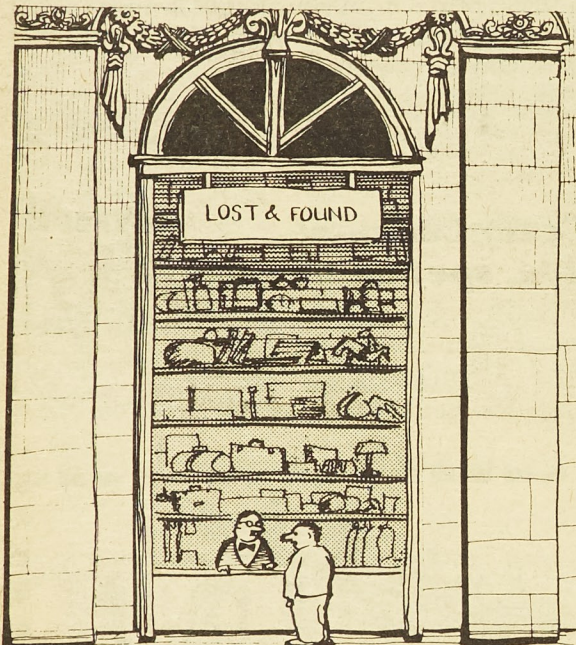 LOST & FOUND